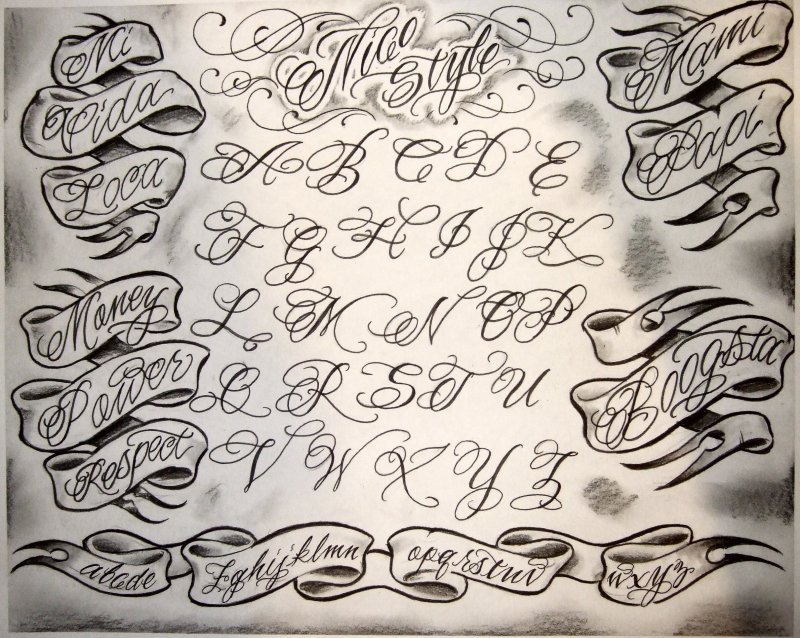 Nico
Style
Mi
Vida
Loca
Mami
Papi
A B C D E
F G H I J K
L M N O P
Q R S T U
V W X Y Z
Money
Power
Respect
Boogsta
abcde fghijklmn opqrstuv wxyz